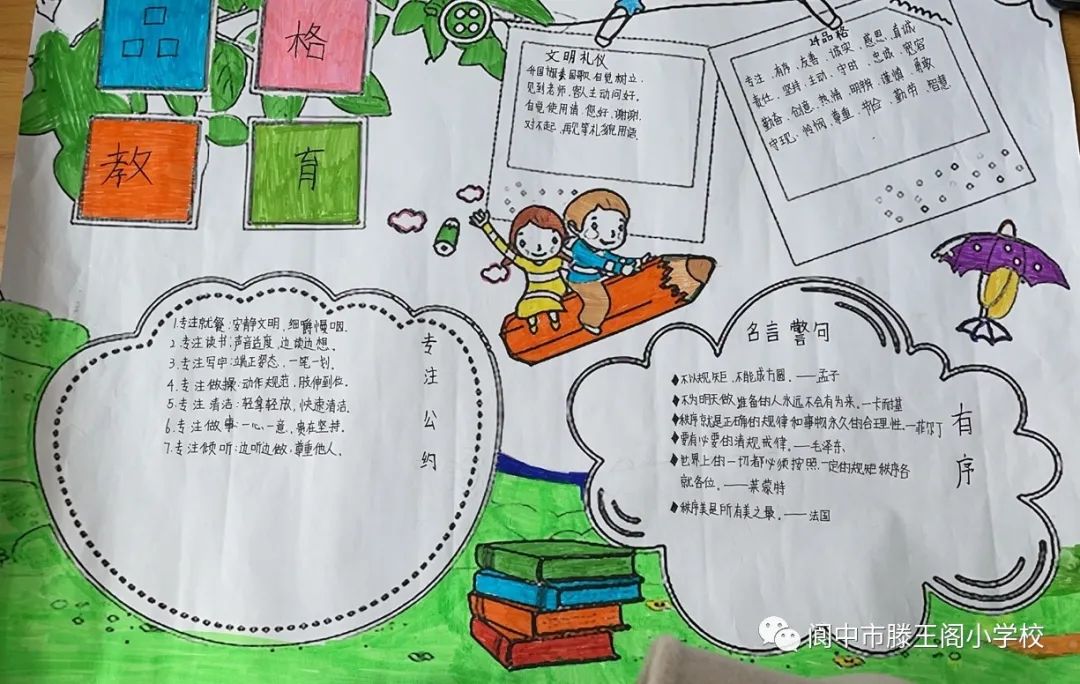 品
格
教
育
文明礼仪
升国旗奏国歌,自觉树立.
见到老师、客人主动问好.
自觉使用请、您好、谢谢.
对不起、再见等礼貌用语.
24品格
专注、有序、友善、诚实、感恩、真诚
责任、坚持、主动、守时、忠诚、宽容
勤奋、创意、热情、明辨、谨慎、勇敢
怜悯、尊重、节俭、勤劳、智慧
专注公约
1.专注就餐:安静文明,细嚼慢咽.
2.专注读书:声音适度,边读边想.
3.专注写字:端正姿态,一笔一划.
4.专注做操:动作规范,肢伸到位.
5.专注清洁:轻拿轻放,快速清洁.
6.专注做事:一心一意,贵在坚持.
7.专注倾听:边听边做,尊重他人.
名言警句
有序
♦不以规矩,不能成方圆。——孟子
♦不为明天做准备的人永远不会有为来.—卡耐基
♦秩序就是正确的规律和事物永久的合理性.—菲尔丁
♦要有必要的清规戒律.——毛泽东
♦世界上的一切都必须按照一定的规矩秩序各
就各位。——莱蒙特
♦秩序美是所有美之最。——法国
阆中市滕王阁小学校